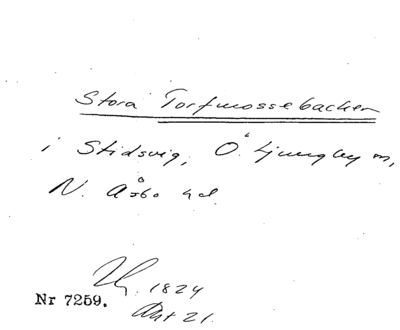 Stora Torfmossebacken
i Stidsvig, Ö. Ljungby sn,
N. Åsbo hd.
1824
Nr 7259.
21.